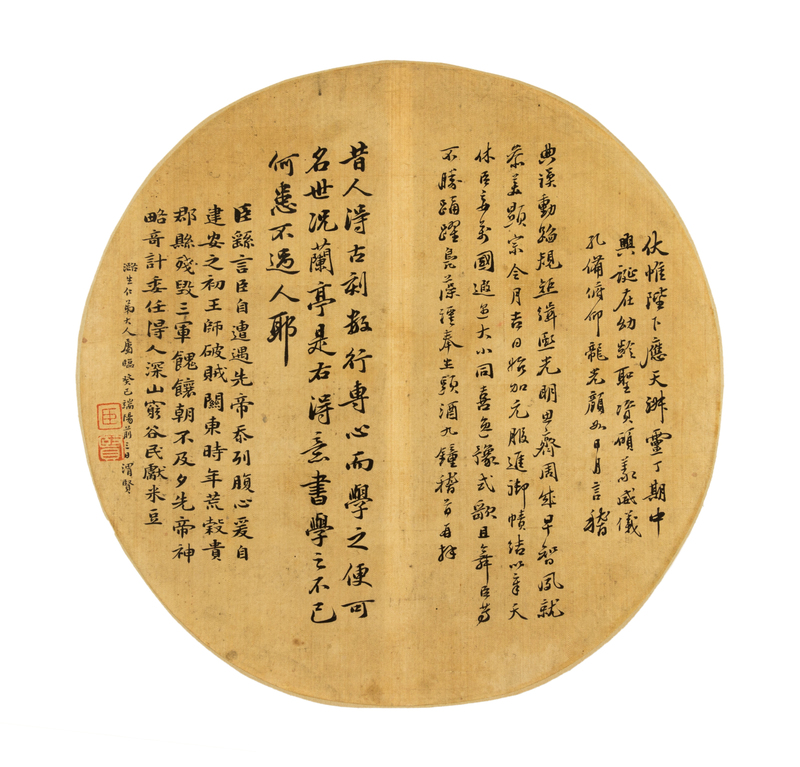 伏惟陛下應天淑靈丁期中
興誕在幼齡聖資碩義威儀
孔備俯仰龍光顏如日月言稽
典謨動蹈規矩緝熙光明思齊周成早智夙就
恭美顯宗令月吉日始加元服進御幘結以章天
休臣妾萬國遐邇大小同喜逸豫式歌且舞臣等
不勝踊躍鳧藻謹奉牛一頭酒九鐘稽首再拜
昔人得古刻數行專心而學之便可
名世況蘭亭是右得意書學之不已
何患不過人耶
臣繇言臣自遭遇先帝忝列腹心爰自
建安之初王師破賊關東時年荒穀貴
郡縣殘毀三軍餽饟朝不及夕先帝神
略奇計委任得人深山窮谷民獻米豆
潞生仁弟大人屬臨癸巳端陽前三日渭賢